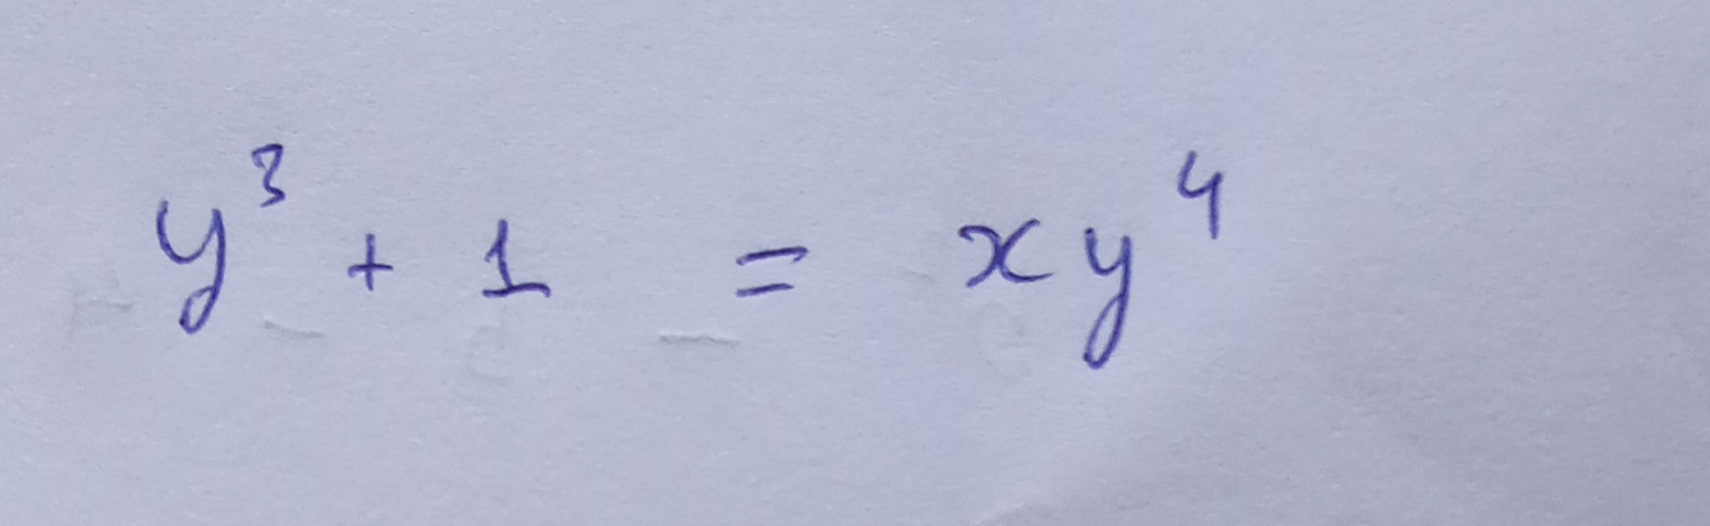 y³ + 1 = xy⁴